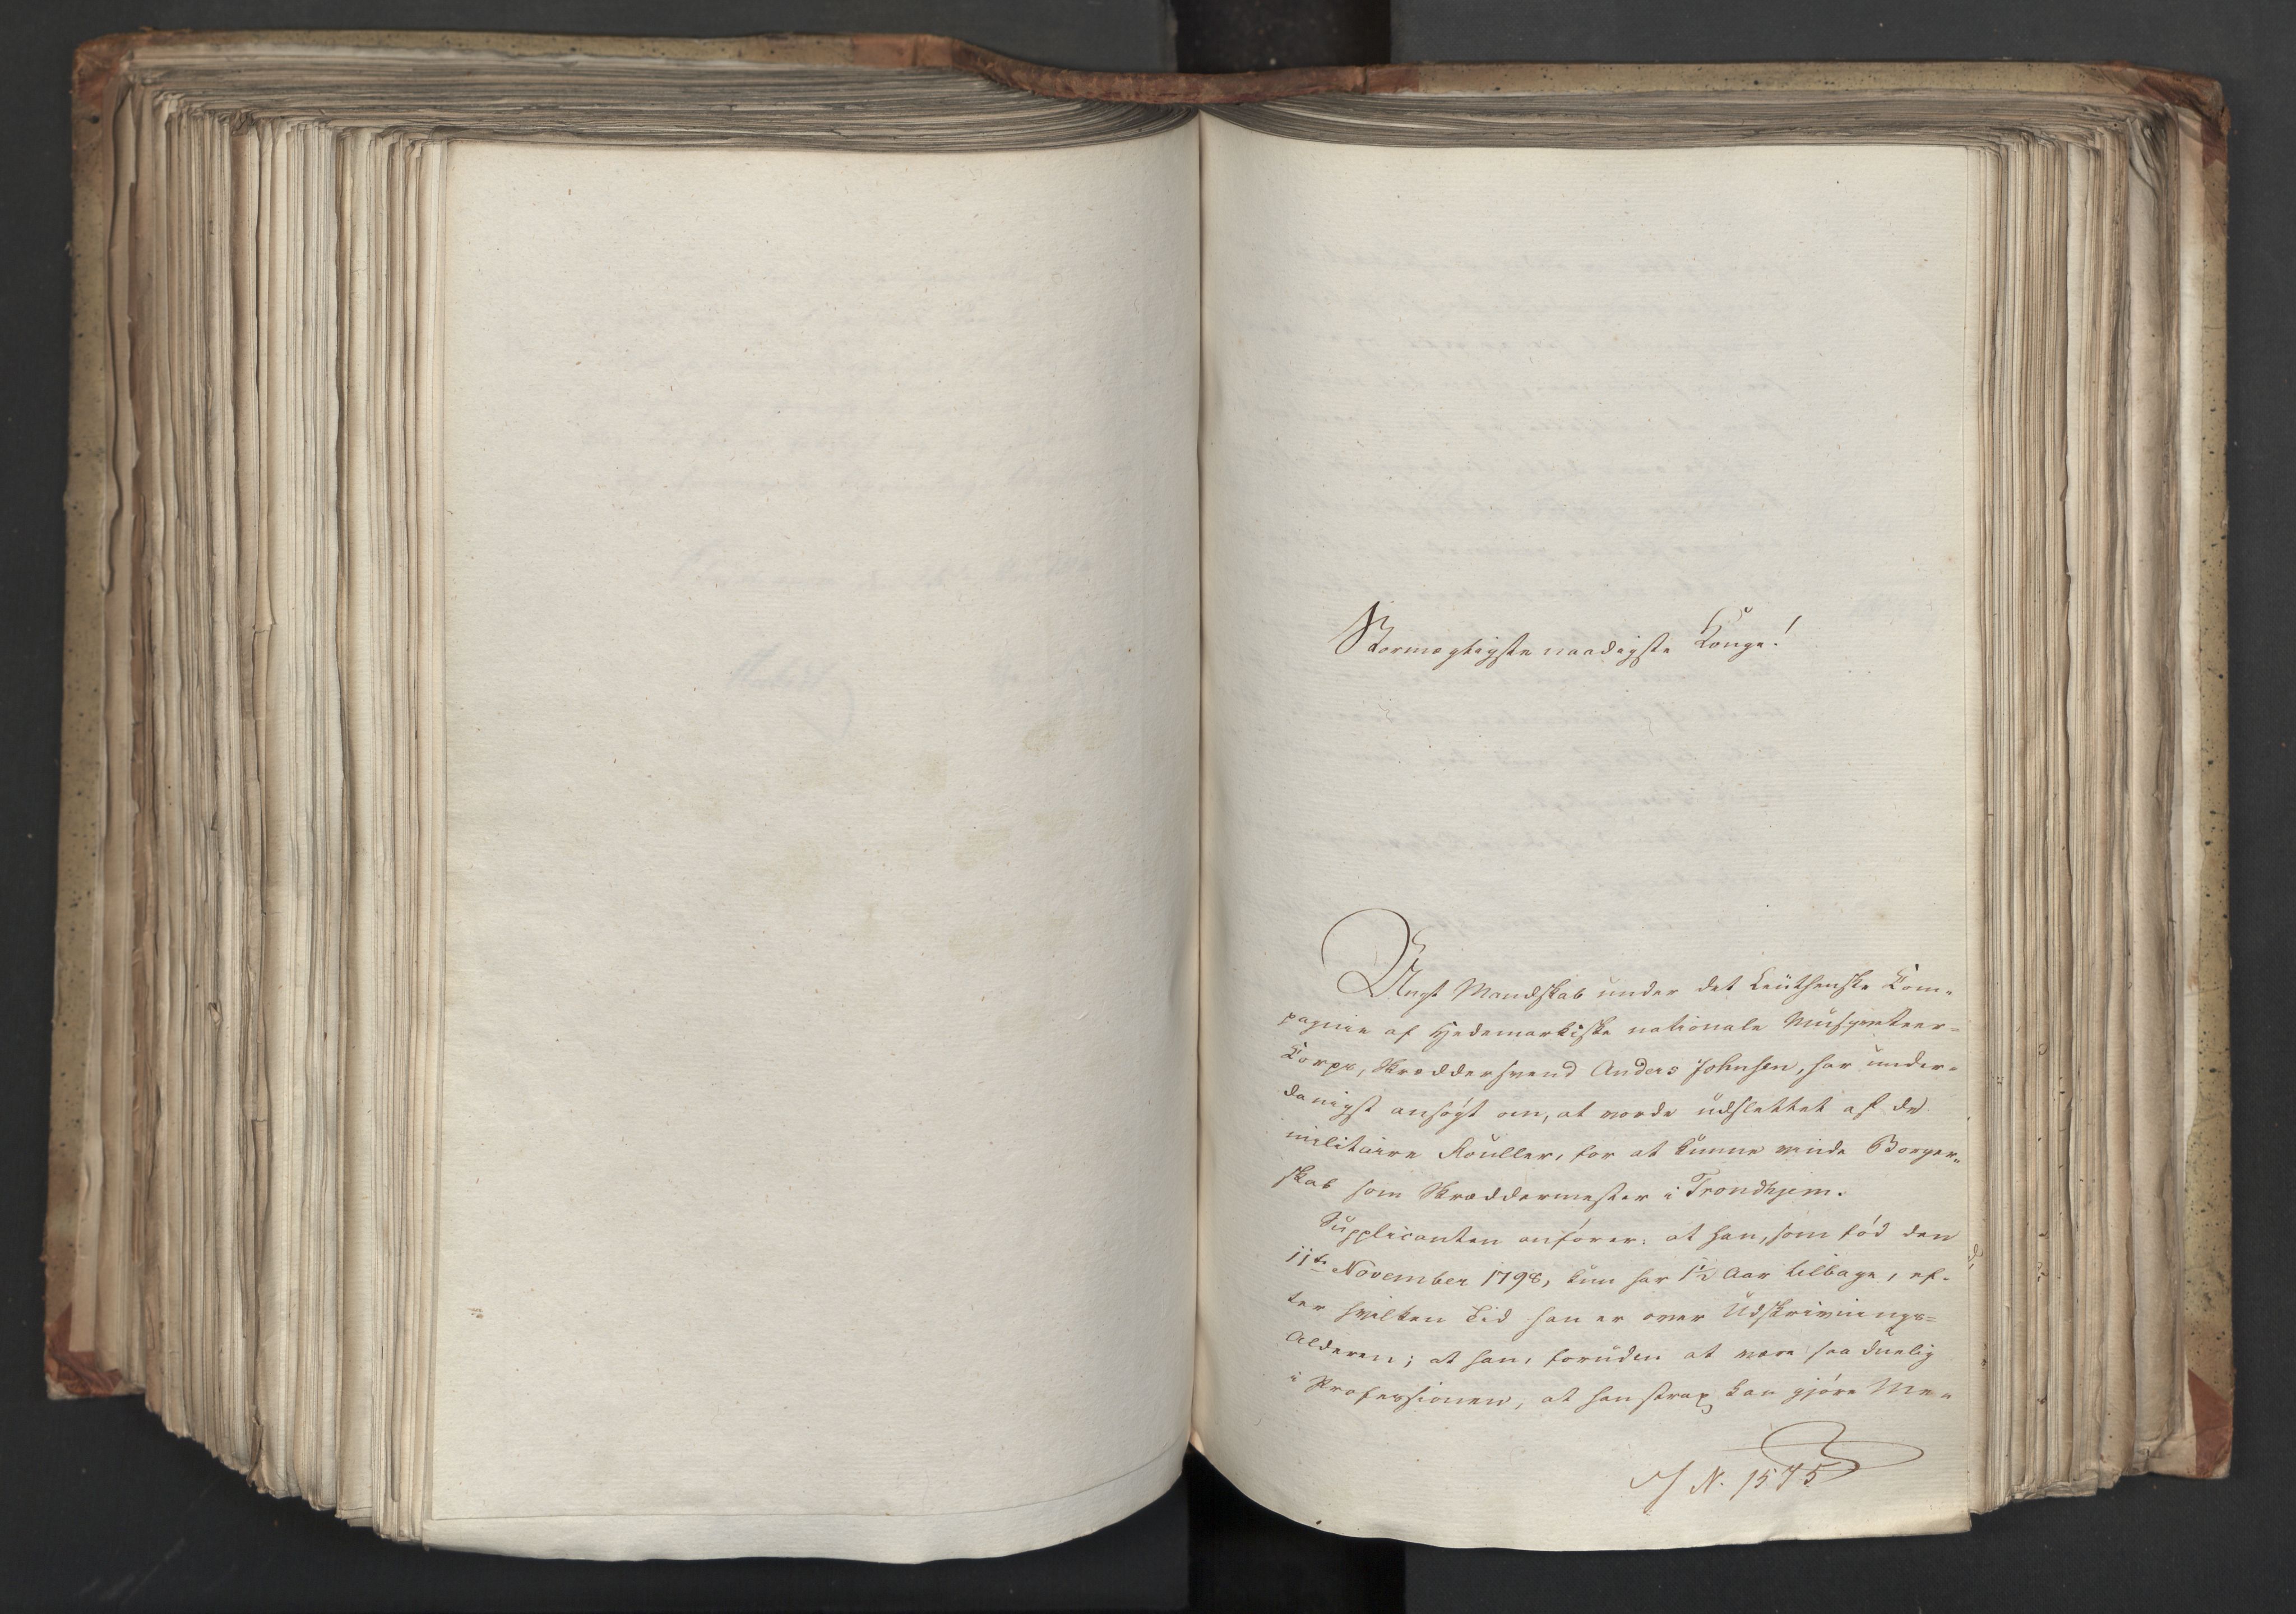 Stormægtigste naadigste Konge!
Ungt Mandskab under det Leuthenske Kom-
pagnie af Hedemarkiske nationale Musqveteer-
Korps, Skræddersvend Anders Johnsen, har under-
danigst ansøgt om, at vorde udslettet af de
militaire Rouller, for at kunne vinde Borger-
skab som Skræddermester i Trondhjem.
Supplicanten anfører: at han, som fød den
11te November 1798, kun har 1½ Aar tilbage, ef-
ter hvilken Tid han er over Udskrivnings-
Alderen; at han, foruden at være saa duelig
i Professionen, at han strax kan gjøre Me-
N. 1575